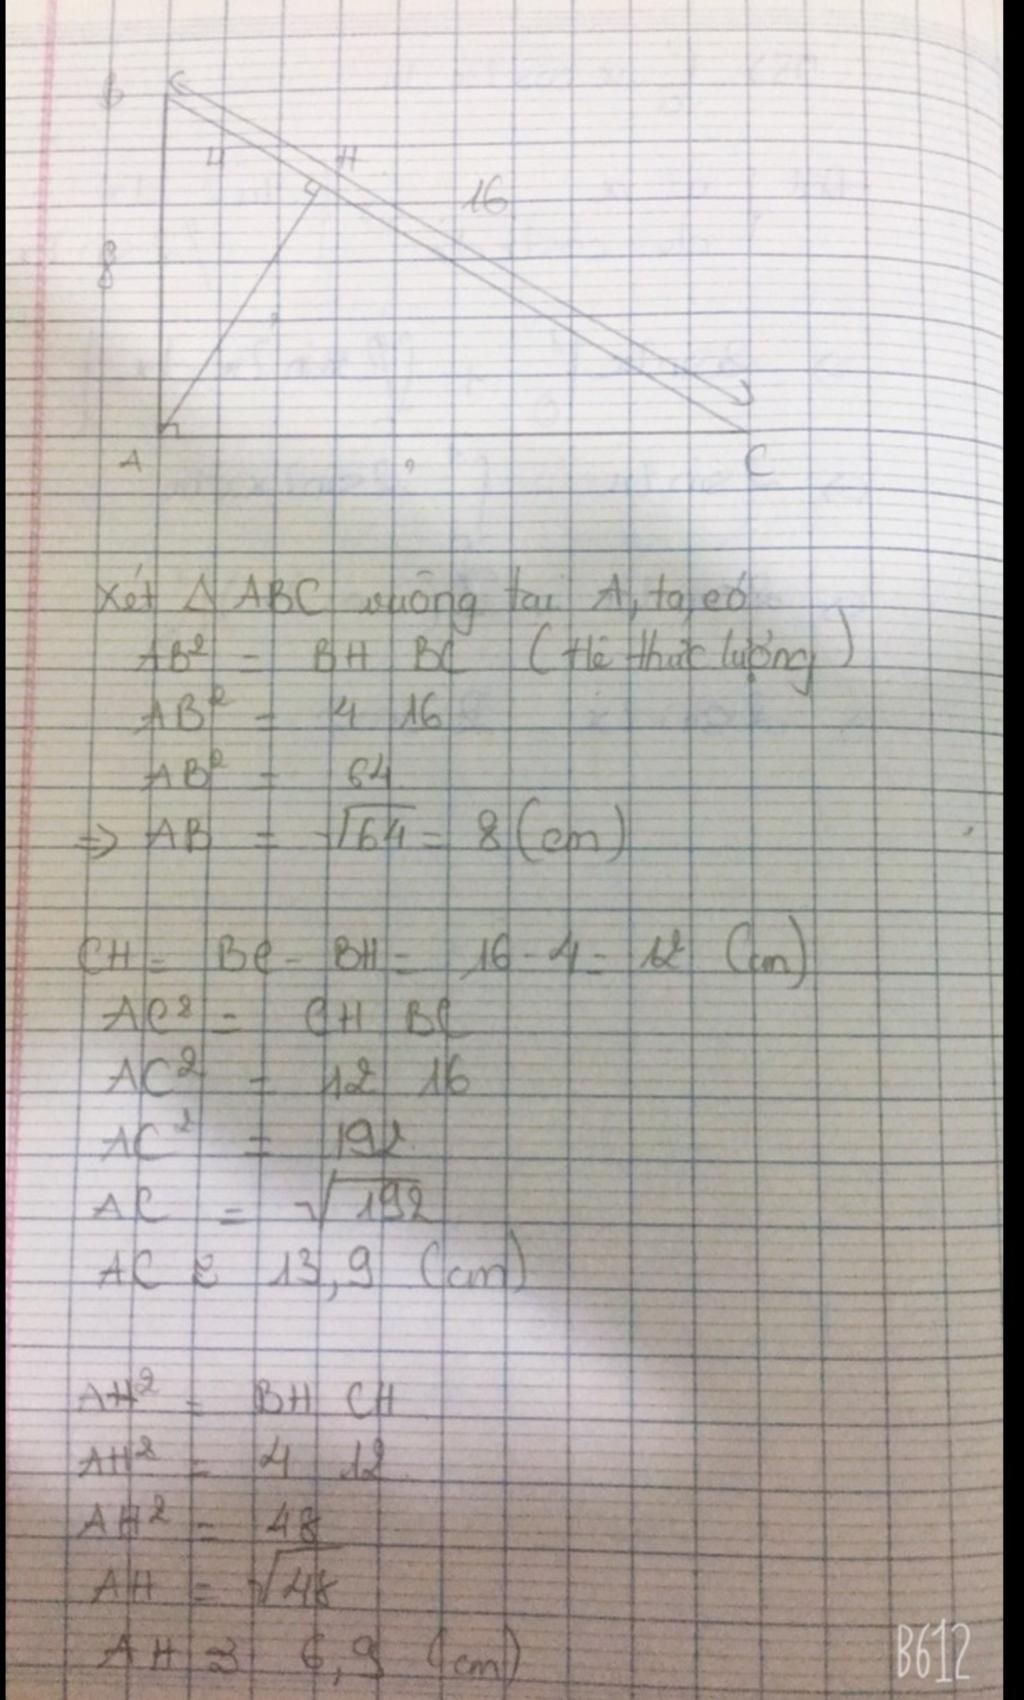 B
4
H
16
8
A
?
C
Xét Δ ABC vuông tại A, ta có
AB² = BH BC (Hệ thức lượng)
AB² = 4 16
AB² = 64
=> AB = √64 = 8 (cm)
CH = BC - BH = 16 - 4 = 12 (cm)
AC² = CH BC
AC² = 12 16
AC² = 192
AC = √192
AC ≈ 13,9 (cm)
AH² = BH CH
AH² = 4 12
AH² = 48
AH = √48
AH ≈ 6,9 (cm)
B612